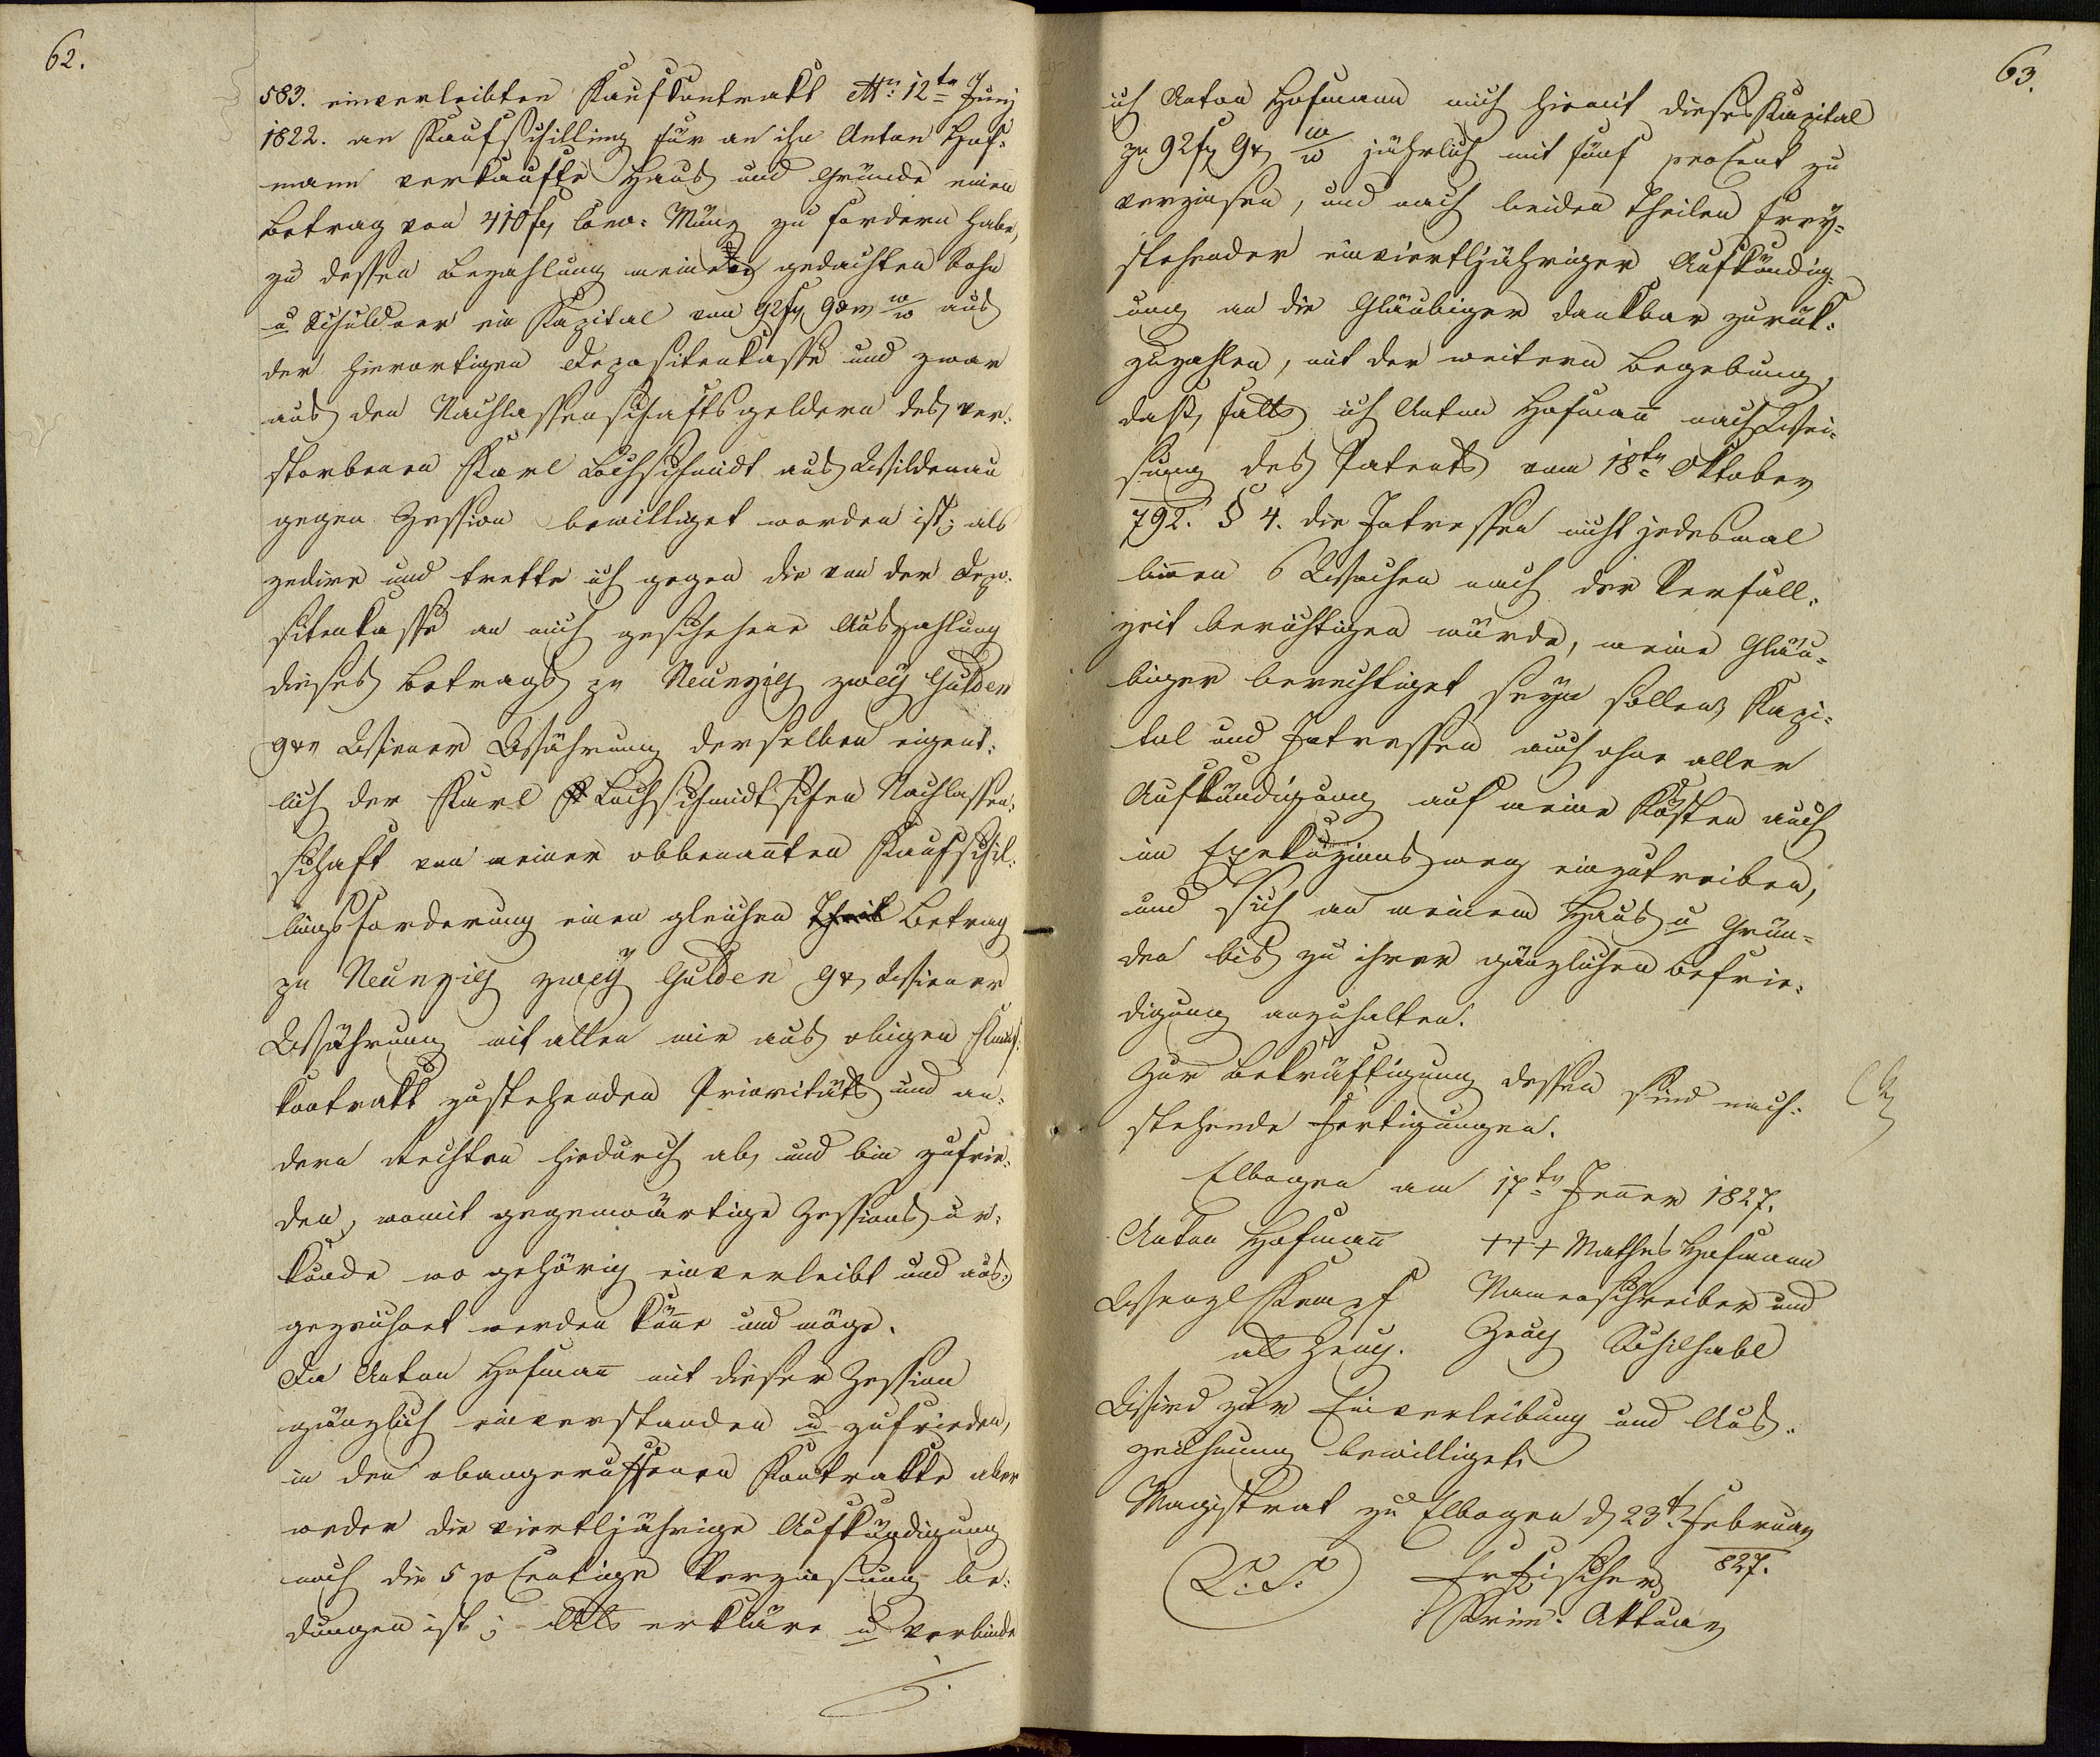 62.
583. einverleibten Kaufkontrakt dtto: 12te Juny
1822. an Kaufschilling für an ihn Anton Hof-
mann verkaufte Haus und Gründe einen
Betrag von 410 f Conv: Münz zu fordern habe,
zu dessen Bezahlung meinem gedachten Sohn
u Schuldner ein Kapital von 92 f 9 xr W/W aus
der hierortigen Depositenkasse und zwar
aus den Nachlassenschaftsgeldern des ver-
storbenen Karl Lochschmidt aus Wildenau
gegen Zession bewilliget worden ist; als
zedire und trette ich gegen die von der Depo-
sitenkasse an mich geschehene Auszahlung
dieses Betrags zu Neunzig zwey Gulden
9 xr Wiener Währung derselben eigent-
lich der Karl Lochschmidtschen Nachlassen-
schaft von meiner obbenannten Kaufschil-
lingsforderung einen gleichen Theil Betrag
zu Neunzig zwey Gulden 9 xr Wiener
Währung mit allen mir aus obigen Kauf-
kontrakt zustehenden Prioritäts und an-
dern Rechten hiedurch ab, und bin zufrie-
den, womit gegenwärtige Zessions ur-
kunde wo gehörig einverleibt und aus-
gezeichnet werden könne und möge.
Da Anton Hofmann mit dieser Zession
gänzlich einverstanden u zufrieden,
in den obangerufenen Kontrakte aber
weder die viertljährige Aufkündigung
noch die 5 po Centige Verzinsung be-
dungen ist; Als erkläre u verbinde
./.
63.
ich Anton Hofmann mich hiemit dieses Kapital
zu 92 f 9 xr W/W jährlich mit fünf procent zu
verzinsen, und nach beiden Theilen frey-
stehender einviertljähriger Aufkündig-
ung an die Gläubiger dankbar zurük-
zuzahlen, mit der weitern Begebung,
daß, falls ich Anton Hofmann nach Wei-
sung des Patents vom 18ten Oktober
792. § 4. die Intressen nicht jedesmal
binnen 6 Wochen nach der Verfall-
zeit berichtigen würde, meine Gläu-
biger berechtiget seyn sollen, Kapi-
tal und Intressen auch ohne aller
Aufkündigung auf meine Kösten auch
im Exekuzionsweg einzutreiben,
und sich an meinem Haus u Grün-
den bis zu ihrer gänzlichen Befrie-
digung anzuhalten.
Zur Bekräftigung dessen sind nach-
stehende Fertigungen.
Elbogen am 17ten Jenner 1827.
Anton Hofmann +++ Mathes Hofmann
Wenzl Kempf Namenschreiber und
als Zeug. Zeug Schilhabl
Wird zur Einverleibung und Aus-
zeichnung bewilliget
Magistrat zu Elbogen d 23t. February
827.
L. S. Fischer
Krim: Aktuar